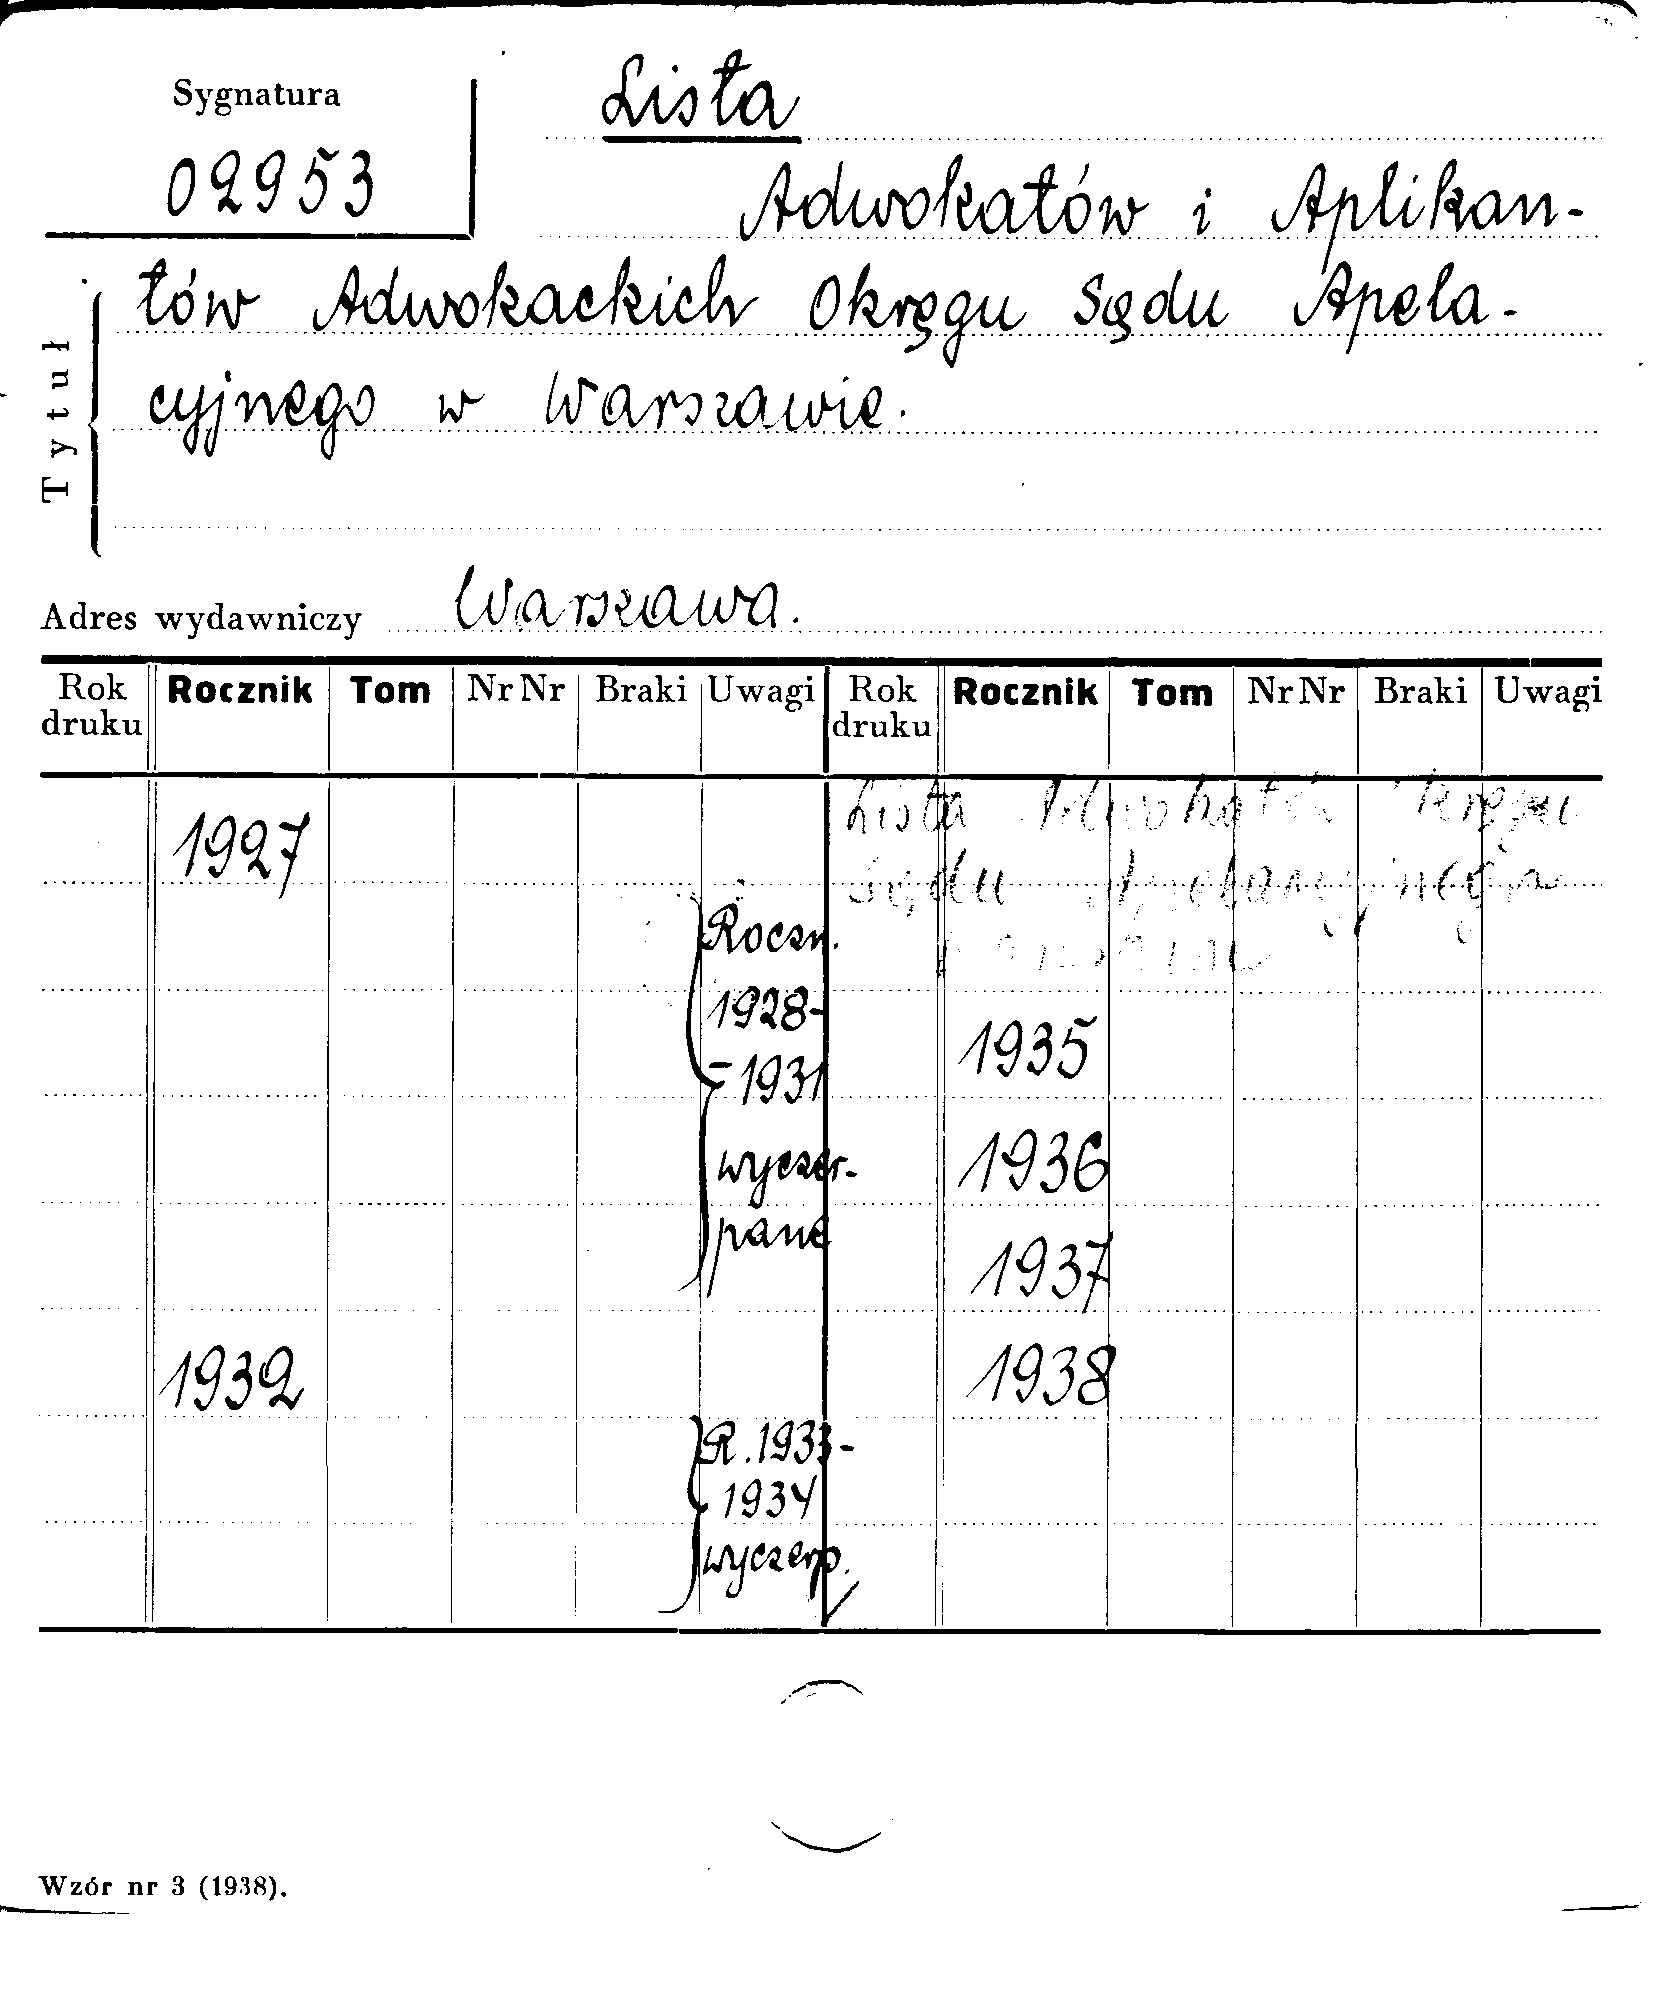 Sygnatura
02953
Lista
Adwokatów i Aplikan-
tów Adwokackich Okręgu Sędu Apela-
cyjnego w Warszawie.
Tytuł
Adres wydawniczy Warszawa.
Rok druku Rocznik Tom Nr Nr Braki Uwagi Rok druku Rocznik Tom Nr Nr Braki Uwagi
1927
Roczn.
1928-
-1931
wyczer-
pane
1932
R. 1933-
1934
wyczerp.
Lista
Sędu Apelacyjnego
1935
1936
1937
1938
Wzór nr 3 (1938).